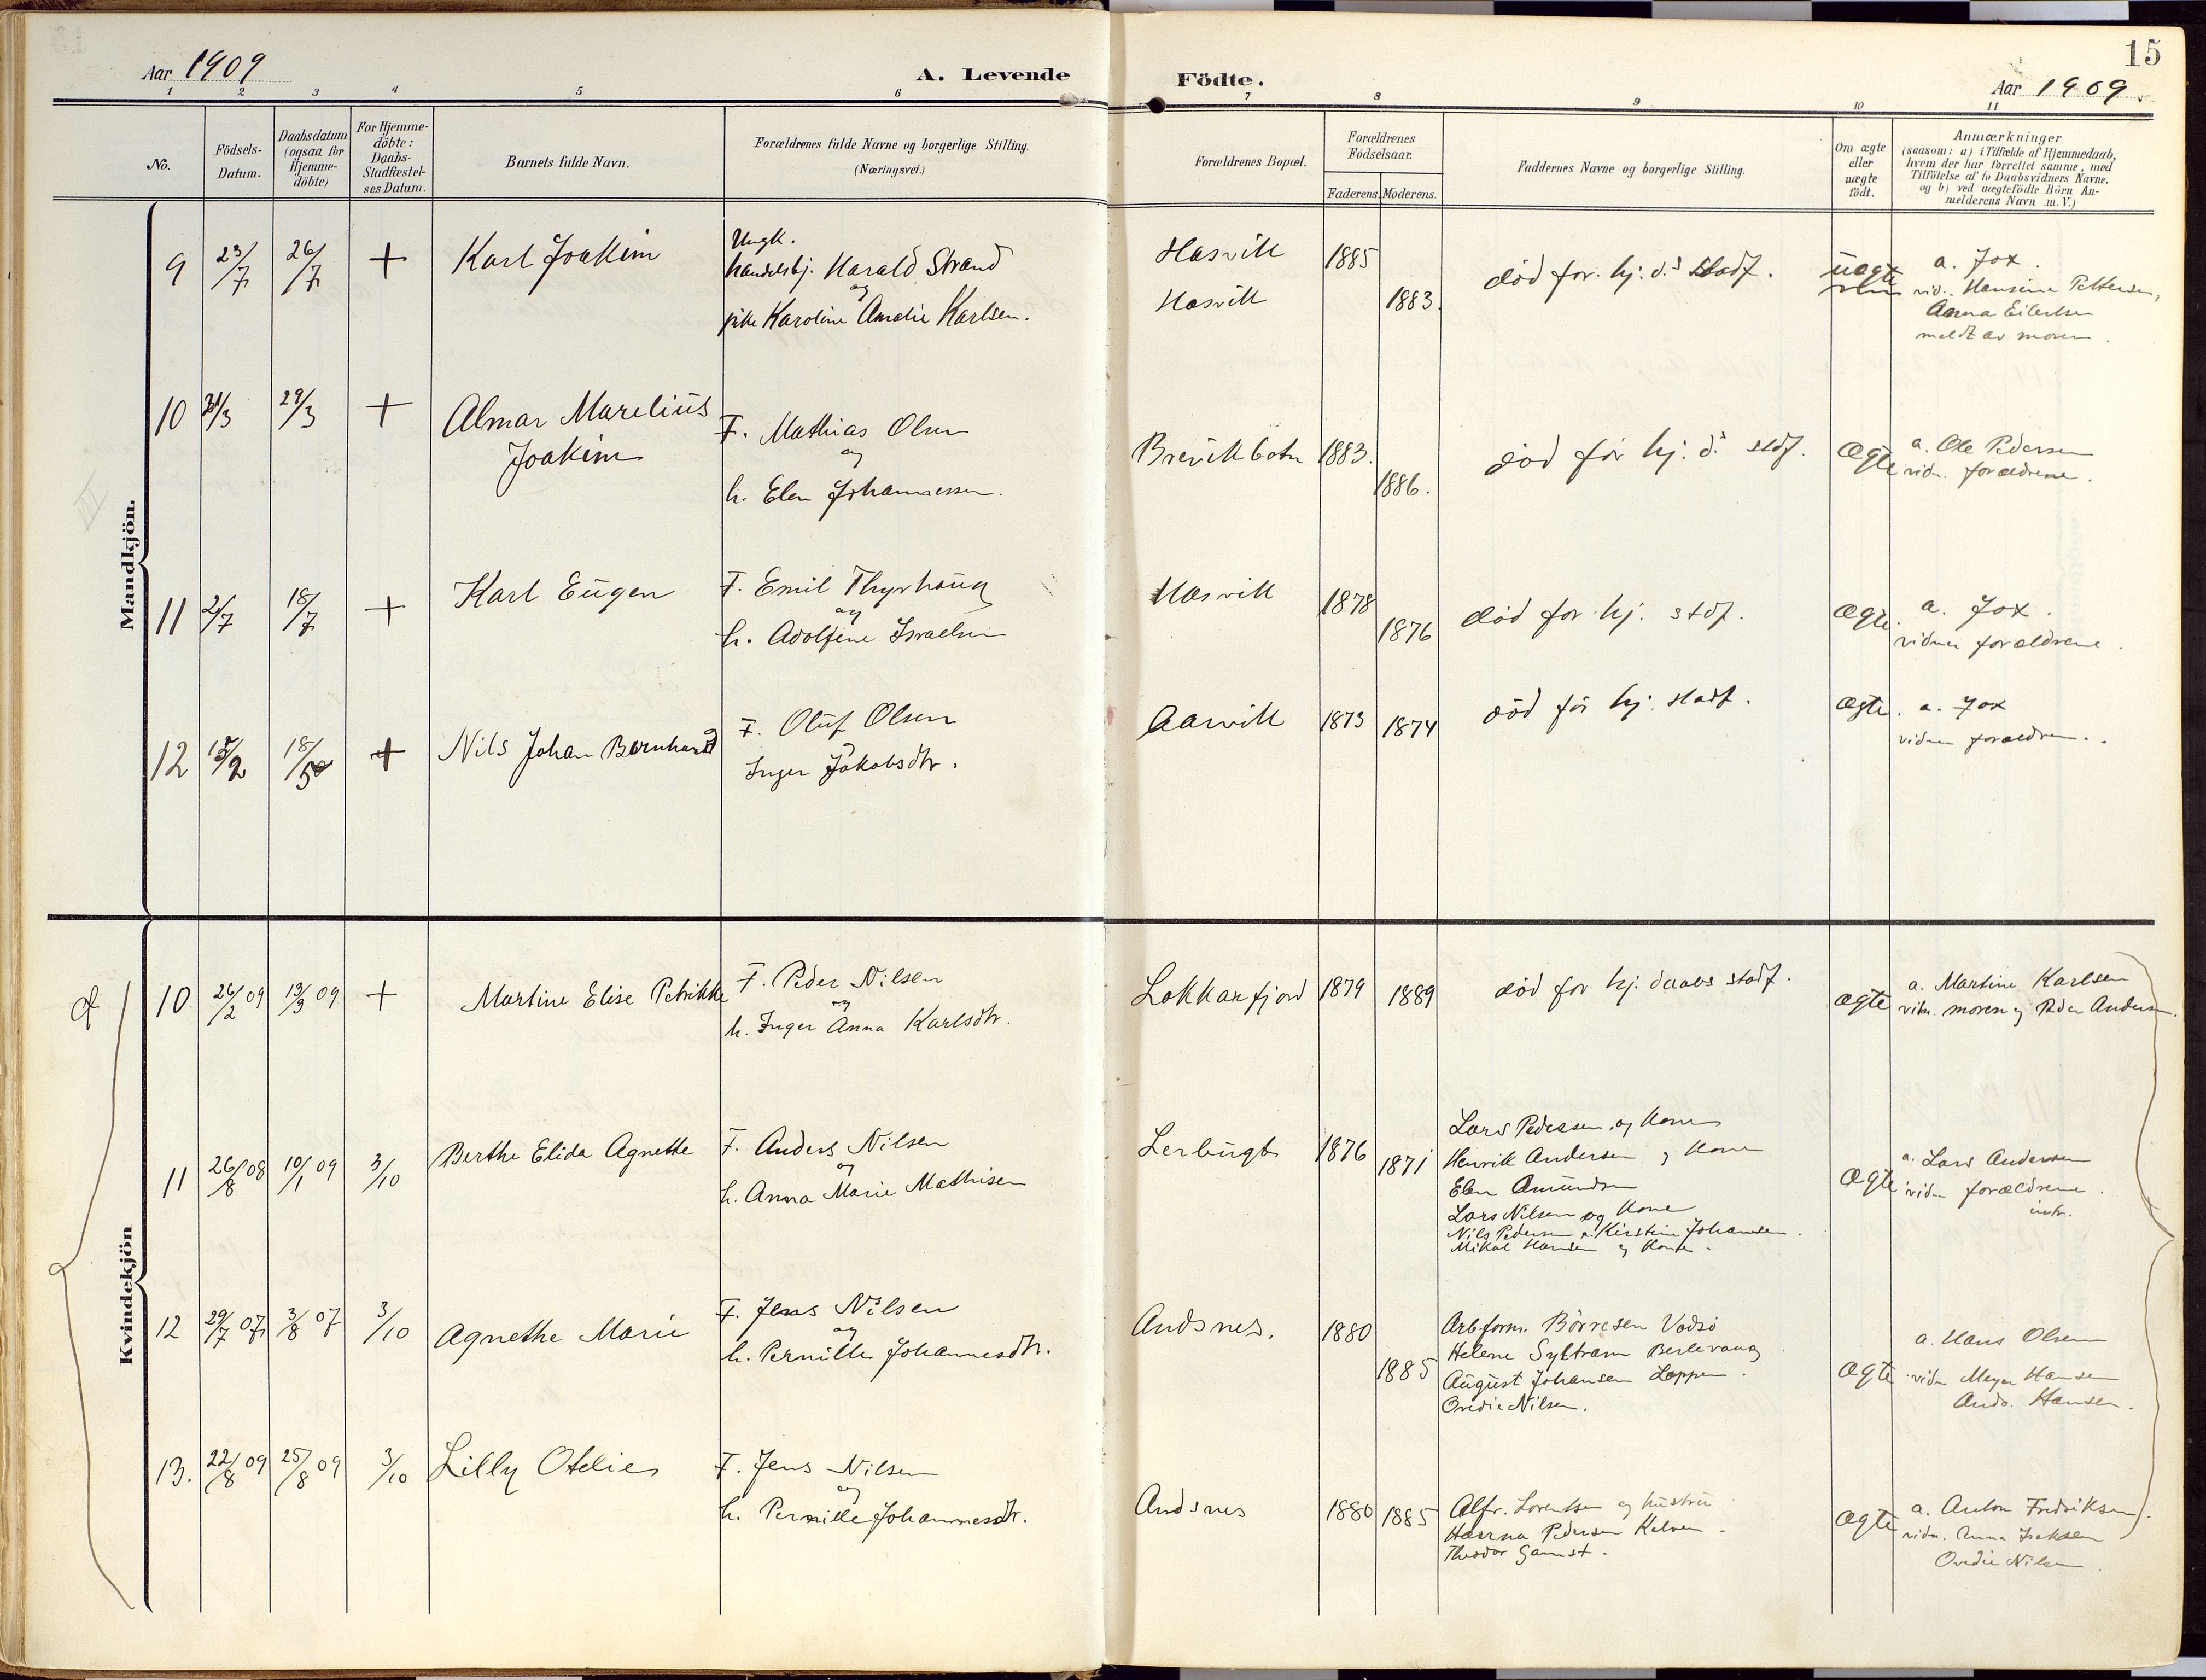 15
Aar 1909
A. Levende Födte.
Aar 1909.
1 2 3 4 5 6 7 8 9 10 11
No.
Födsels-Datum.
Daabsdatum (ogsaa for Hjemme-döbte)
For Hjemme-döbte: Daabs-Stadfæstel-ses Datum.
Barnets fulde Navn.
Forældrenes fulde Navne og borgerlige Stilling. (Næringsvei.)
Forældrenes Bopæl.
Forældrenes Födselsaar.
Faderens. Moderens.
Faddernes Navne og borgerlige Stilling.
Om ægte eller uægte födt.
Anmærkninger
(saasom: a) i Tilfælde af Hjemmedaab,
hvem der har forrettet samme, med
Tilföielse af to Daabsvidners Navne.
og b) ved uægtefödte Börn An-
melderens Navn m. V.)
Mandkjön.
9 23/7 26/7 + Karl Joakim
Ungk.
handelsbj. Harald Strand
og
pike Karoline Amalie Karlsen.
Hasvik 1885
Hasvik 1883.
död for. hj. d.s stadf.
uægte
a. Fox.
vid. Hansine Pettersen,
Anna Eilertsen
meldt av moren.
10 /3 29/3 + Almar Marelius
Joakim
F. Mathias Olsen
og
h. Elen Johannessen.
Brevikbotn 1883.
1886.
död för hj. d.s stdf.
ægte
a. Ole Pedersen
vidn. forældrene.
11 2/7 18/7 + Karl Eugen
F. Emil Thyrhaug
og
h. Adolfine Israelsen
Hasvik 1878
1876
död for hj. stdf.
ægte.
a. Fox.
vidner forældrene.
12 15/2 18/5 + Nils Johan Bernhard
F. Oluf Olsen
Inger Jakobsdtr.
Aarvik 1873 1874
död för hj. stadf.
ægte.
a. Fox
vidner forældren..
Kvindekjön
10 26/2 09 13/3 09 + Martine Elise Petrikke
F. Peder Nilsen
og
h. Inger Anna Karlsdtr.
Lokkarfjord 1879 1889
död for hj. daabs stadf.
ægte
a. Martine Karlsen
vidn. moren og Peder Andersen.
11 26/8 08 10/1 09 3/10 Berthe Elida Agnette
F. Anders Nilsen
og
h. Anna Marie Mathisen
Lerbugt 1876 1871
Lars Pedersen og Kone
Henrik Andersen og Kone
Elen Amundsen
Lars Nilsen og Kone
Nils Pedersen Kirstine Johansen.
Mikal Hansen og Kone.
ægte
a. Lars Andersen
vidn forældrene.
12 29/7 07 3/8 07 3/10 Agnethe Marie
F. Jens Nilsen
og
h. Pernille Johannesdtr.
Andsnes. 1880
1885
Arb.form. Börresen Vadsö
Helene Syltram Berlevaag
August Johansen Loppen.
Ovedie Nilsen.
ægte
a. Hans Olsen
vidn Meyer Hansen
Ands. Hansen.
13. 22/8 09 25/8 09 3/10 Lilly Otelie
F. Jens Nilsen
og
h. Pernille Johannesdtr.
Andsnes 1880 1885
Alfr. Lorentsen og hustru
Hanna Pedersen Kelven.
Theodor Gamst.
ægte
a. Anton Fredriksen.
vidn. Anna Isaksen
Ovedie Nilsen.